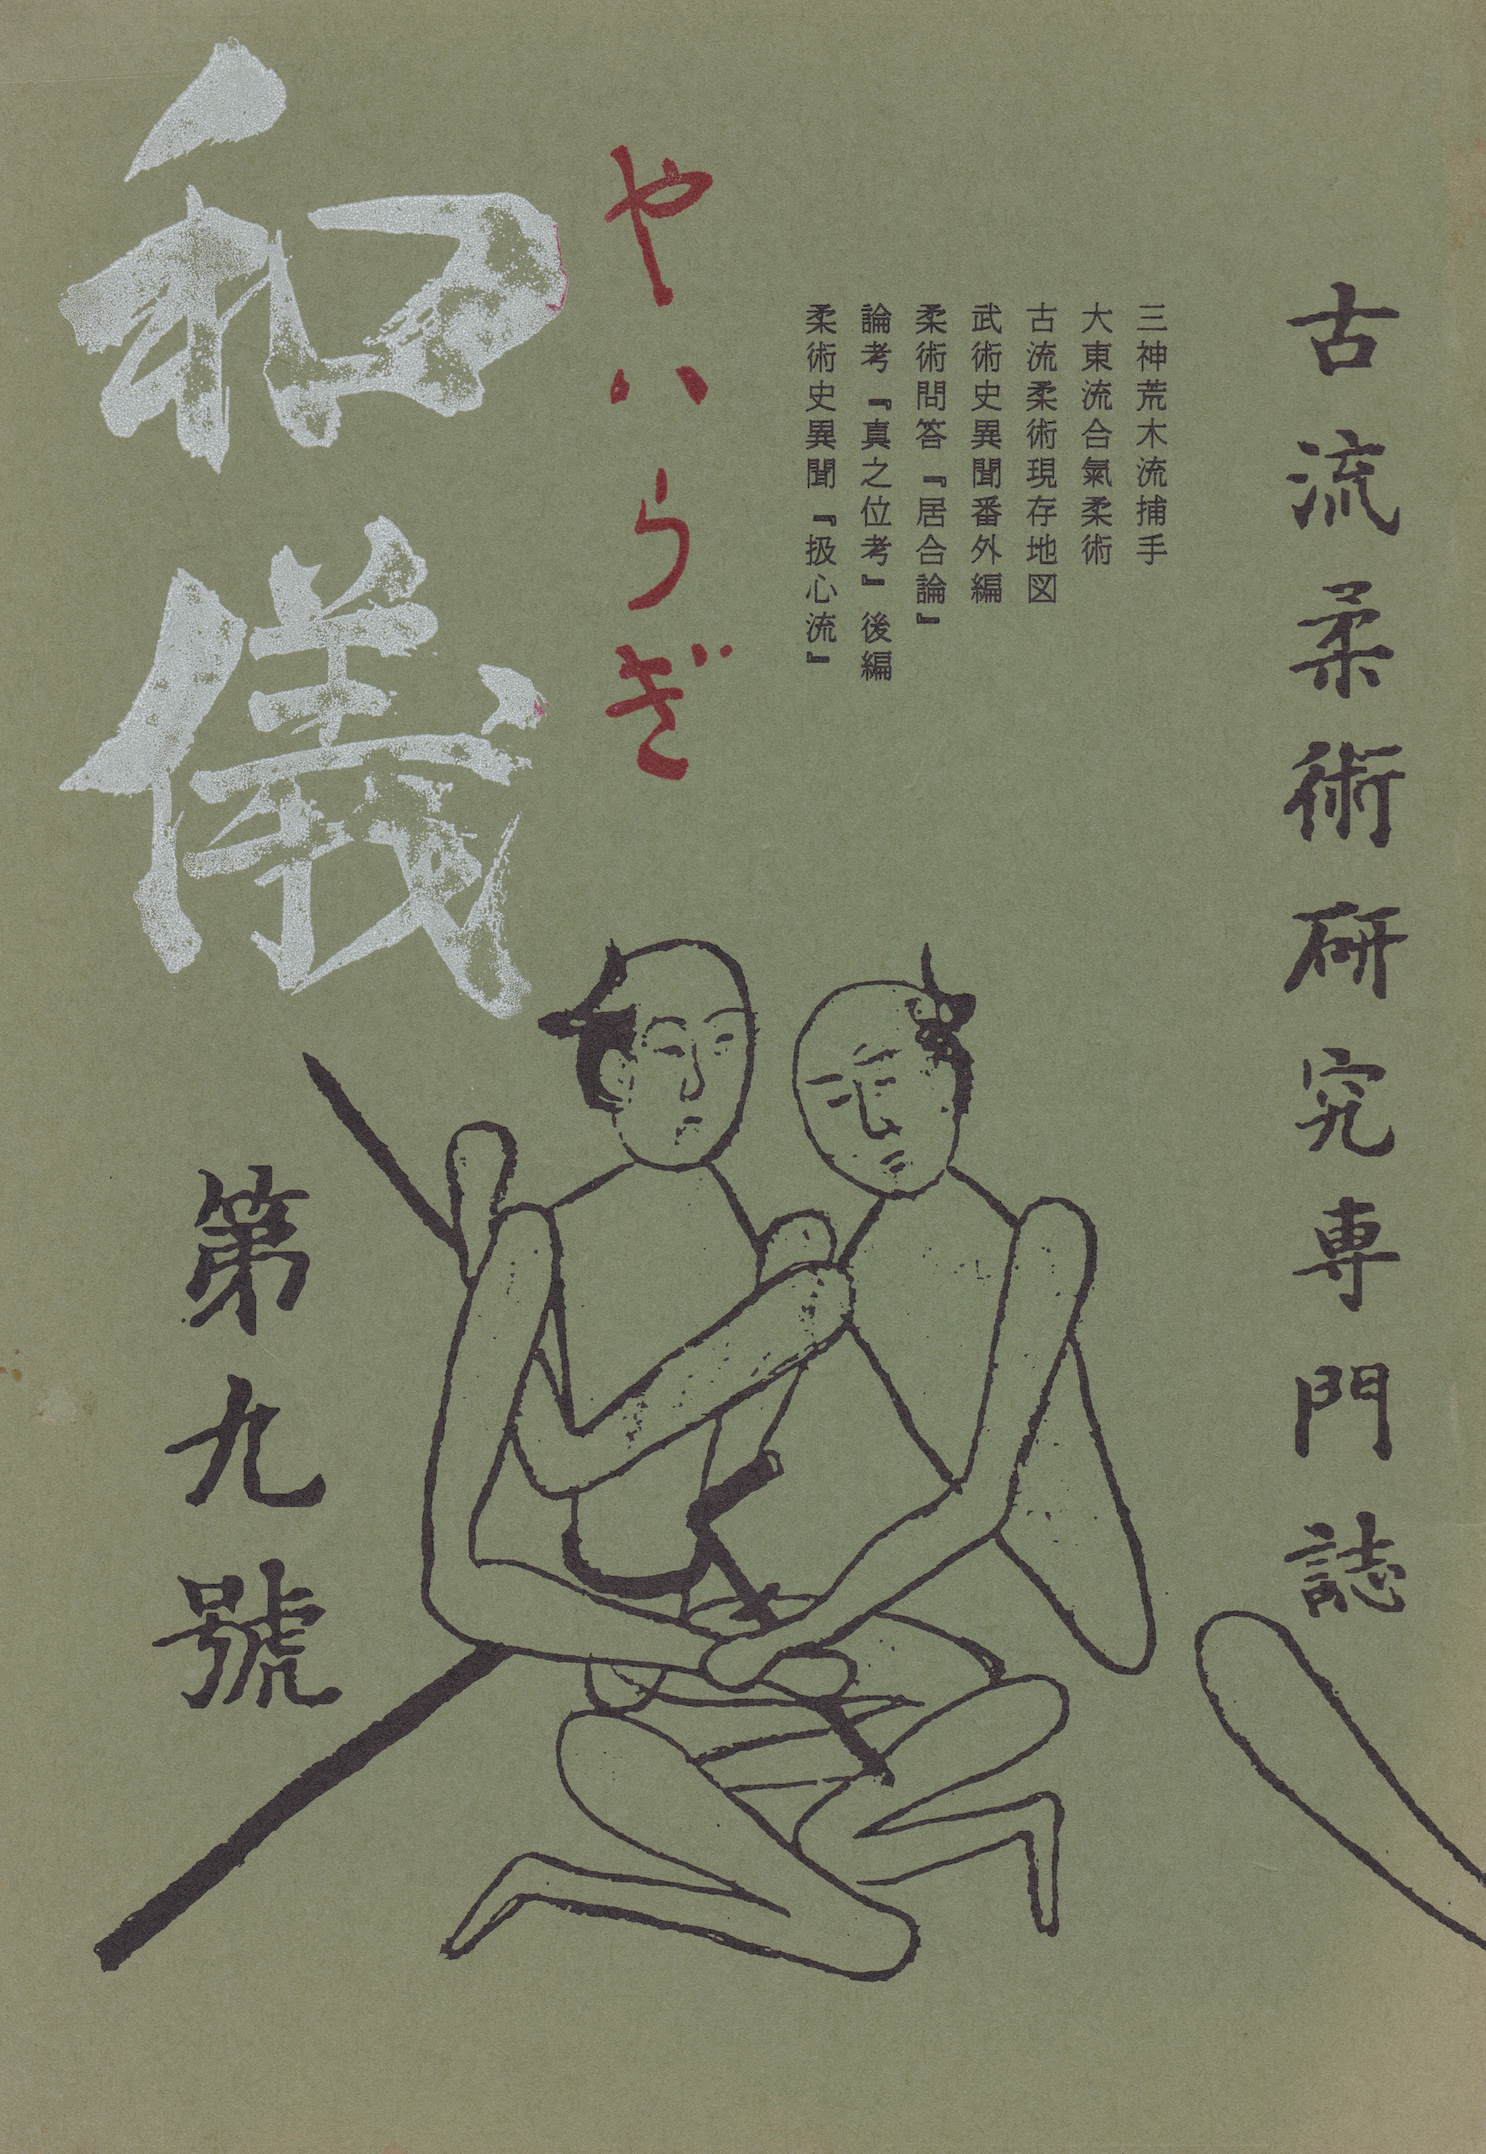 古流柔術研究専門誌
三神荒木流捕手
大東流合氣柔術
古流柔術現存地図
武術史異聞番外編
柔術問答『居合論』
論考『真之位考』後編
柔術史異聞『扱心流』
やハらぎ
和儀
第九號